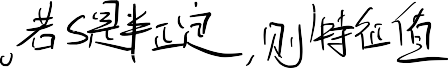 。若S是半正定,则特征值